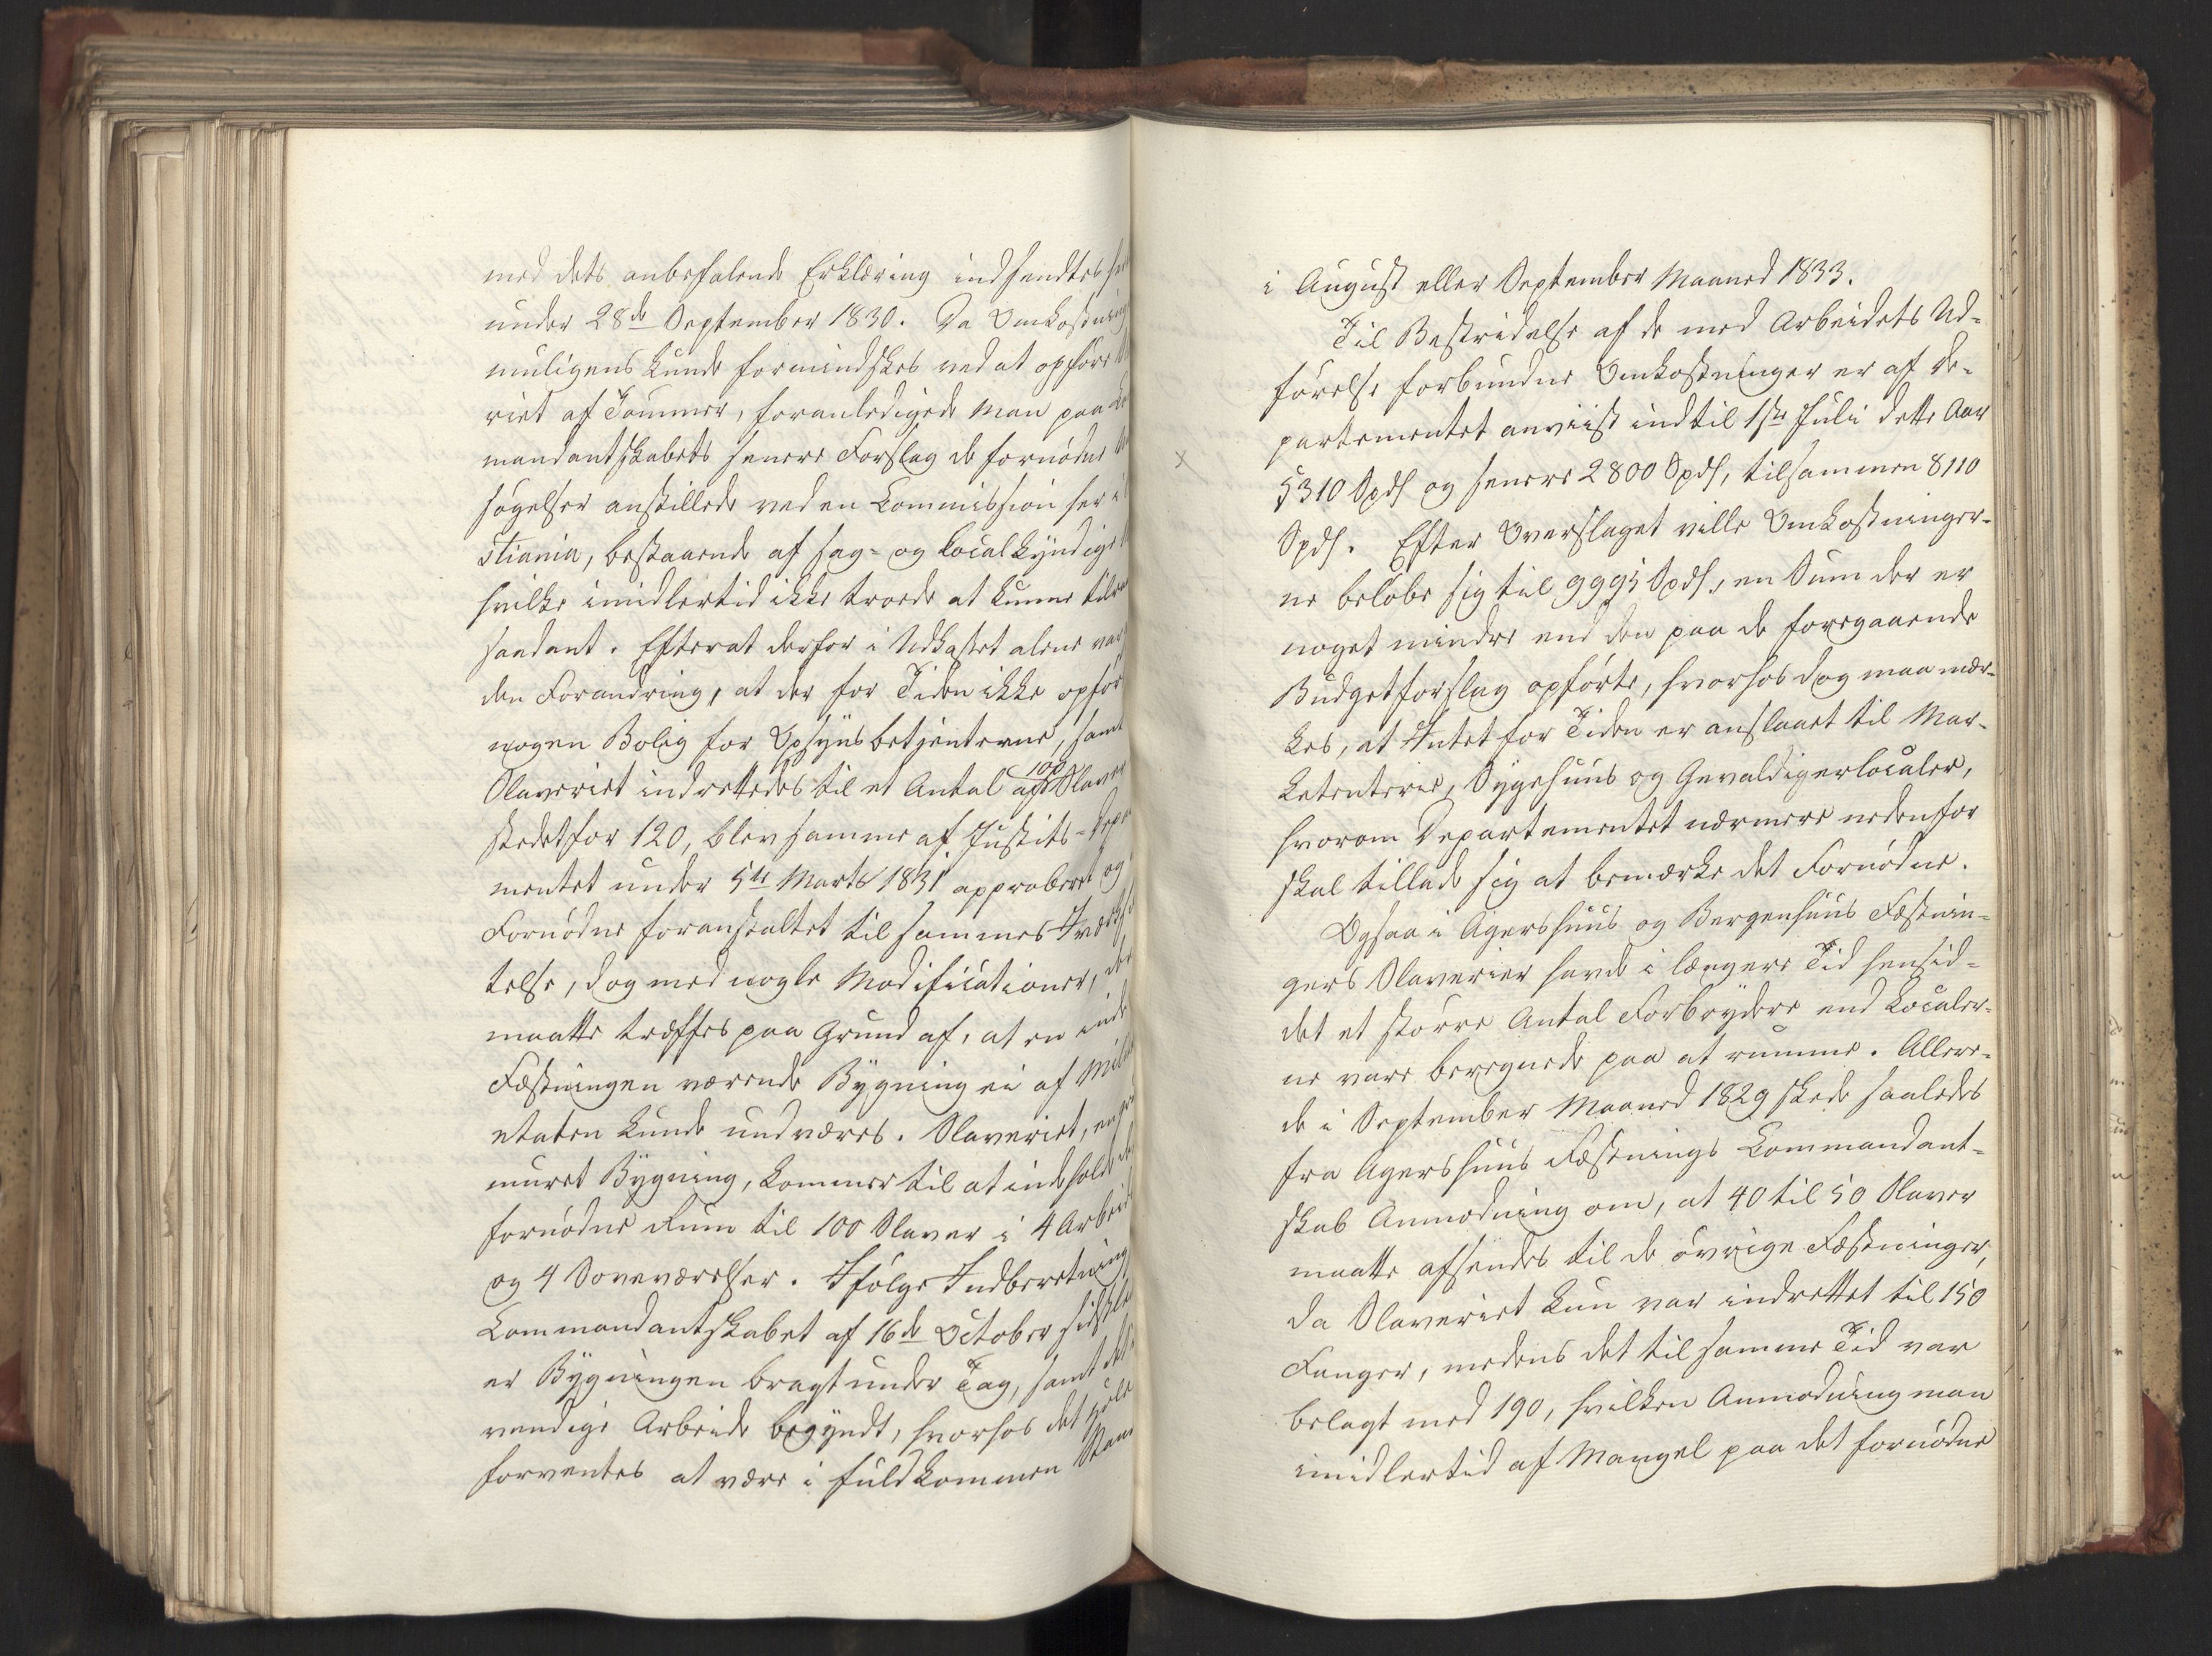 med dets anbefalende Erklæring indsendtes
under 28de September 1830. Da Omkostning
muligens kunde formindskes ved at opføre
riet af Tømmer, foranledigede man paa
mandantskabets senere Forslag de fornødne
søgelser anstillede ved en Commission her i
stiania, bestaaende af sag- og localkyndige
hvilke imidlertid ikke troede at kunne tilra
saadant. Efterat derfor i Udkastet alene var
den Forandring, at der for Tiden ikke opfør
nogen Bolig for Opsynsbetjenterne, samt
Slaveriet indrettedes til et Antal af 100 Slaver
stedetfor 120, blev samme af Justits-Depa
mentet under 5te Marts 1831 approberet og
Fornødne foranstaltet til sammes Iværksæt
telse, dog med nogle Modificationer, der
maatte træffes paa Grund af, at en inde
Fæstningen værende Bygning ei af Mili
etaten kunde undværes. Slaveriet, en
muret Bygning, kommer til at indeholde
fornødne Rum til 100 Slaver i 4 Arbeids
og 4 Soveværelser. Ifølge Indberetning
Commandantskabet af 16de October sidstle
er Bygningen bragt under Tag, samt det
vendige Arbeide begyndt, hvorhos det Hele
forventes at være i fuldkommen Stand
i August eller September Maaned 1833.
Til Bestridelse af de med Arbeidets Ud-
førelse forbundne Omkostninger er af De-
partementet anviist indtil 1ste Juli dette Aar
5310 Spds og senere 2800 Spds, tilsammen 8110
Spds. Efter Overslaget ville Omkostninger-
ne beløbe sig til 9995 Spds., en Sum der er
noget mindre end den paa de foregaaende
Budgetforslag opførte, hvorhos dog maa mær-
kes, at Intet for Tiden er anslaaet til Mar-
ketenterie, Sygehuus og Gevaldigerlocaler,
hvorom Departementet nærmere nedenfor
skal tillade sig at bemærke det Fornødne.
Ogsaa i Agershuus og Bergenhuus Fæstnin-
gers Slaverier havde i længere Tid hensid-
det et større Antal Forbrydere end Localer-
ne vare beregnede paa at rumme. Allere-
de i September Maaned 1829 skede saaledes
fra Agershuus Fæstnings Commandant-
skab Anmodning om, at 40 til 50 Slaver
maatte afsendes til de øvrige Fæstninger,
da Slaveriet kun var indrettet til 150
Fanger, medens det til samme Tid var
belagt med 190, hvilken Anmodning man
imidlertid af Mangel paa det fornødne